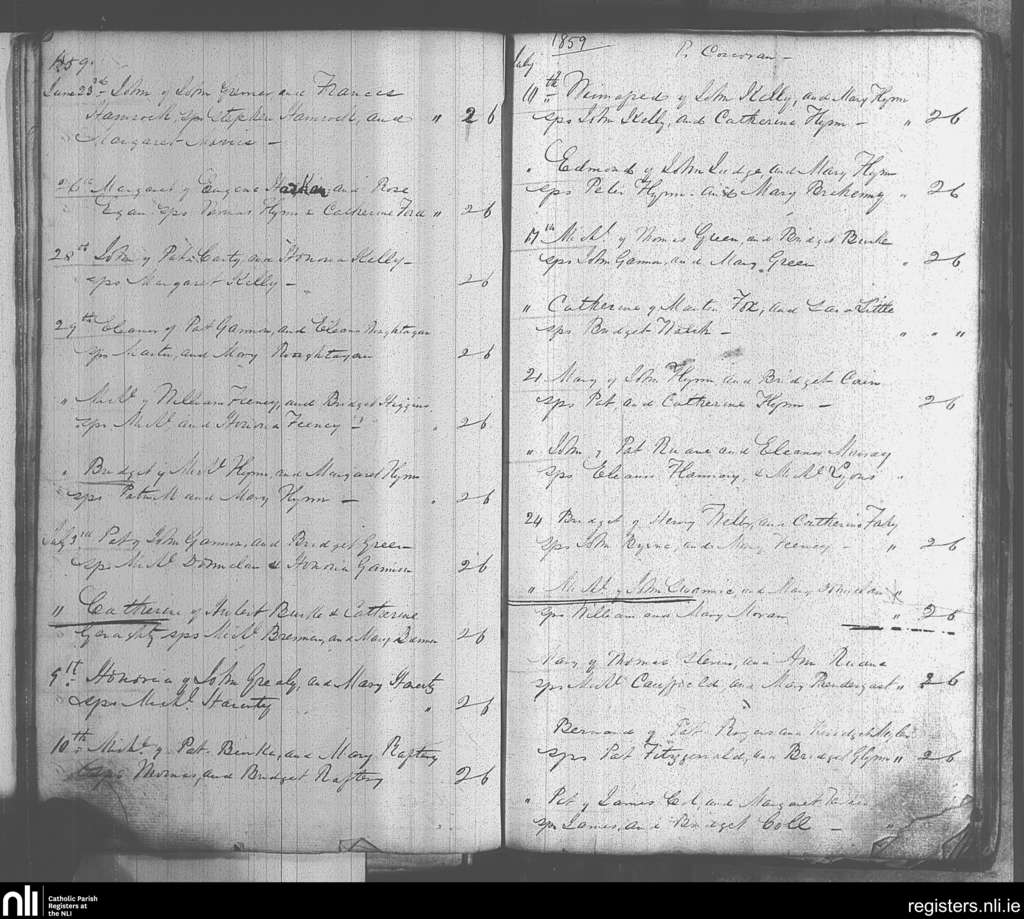 1859
June 23rd John of John and Frances
Hamrock, sps Stephen Hamrock, and " 2 6
Margaret Morris —
26th Margaret of Eugene and Rose
Egan sps Thomas Flynn & Catherine Ford " 2 6
28th John of Pat Carty, and Honoria Kelly —
sps Margaret Kelly — 2 6
29th Eleanor of Pat Gannon, and Eleanor
sps Martin, and Mary 2 6
" Michl. of William Feeney, and Bridget Higgins
sps Michl. and Honoria Feeney — " 2 6
" Bridget of Michl. Flynn, and Margaret Flynn
sps Patrick and Mary Flynn — " 2 6
July 3rd Pat of John Gannon, and Bridget Green
sps Michl. & Honoria Gannon 2 6
" Catherine of Hubert Burke & Catherine
Geraghty sps Michl. Brennan, and Mary 2 6
9th Honoria of John Grealy, and Mary
sps Michl. " 2 6
10th Michl. of Pat Burke, and Mary Raftery
sps Thomas, and Bridget Raftery 2 6
1859
P. Corcoran —
July
10th Winnifred of John Kelly, and Mary Flynn
sps John Kelly, and Catherine Flynn — " 2 6
" Edmond of John Judge and Mary Flynn
sps Peter Flynn and Mary " 2 6
17th Michl. of Thomas Green, and Bridget Burke
sps John Gannon, and Mary Green " 2 6
" Catherine of Martin Fox, and Little
sps Bridget — " " "
21 Mary of John Flynn and Bridget Cain
sps Pat and Catherine Flynn — 2 6
" John of Pat Ruane and Eleanor Murray
sps Eleanor Flannery, & Michl. Lyons "
24 Bridget of Henry and Catherine Fahy
sps John Byrne, and Mary Feeney — " 2 6
" Michl. of John and Mary
sps William and Mary Moran " 2 6
Mary of Thomas and Ann Ruane
sps Michl. Caulfield, and Mary Prendergast " 2 6
Bernard of Pat and
sps Pat Fitzgerald, and Bridget Glynn " 2 6
" Pat of James and Margaret
sps James, and Bridget Coll — "
nli
Catholic Parish
Registers at
the NLI
registers.nli.ie